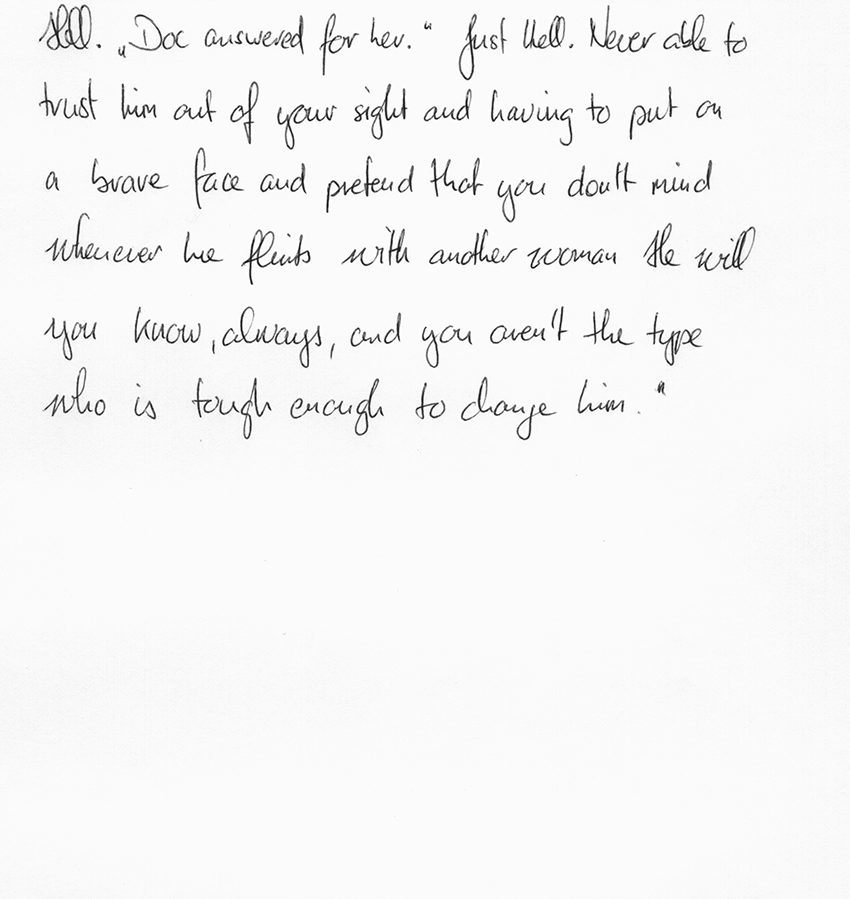 Hell. „Doc answered for her." Just Hell. Never able to
trust him out of your sight and having to put on
a brave face and pretend that you don't mind
whenever he flirts with another woman He will
you know, always, and you aren't the type
who is tough enough to change him."